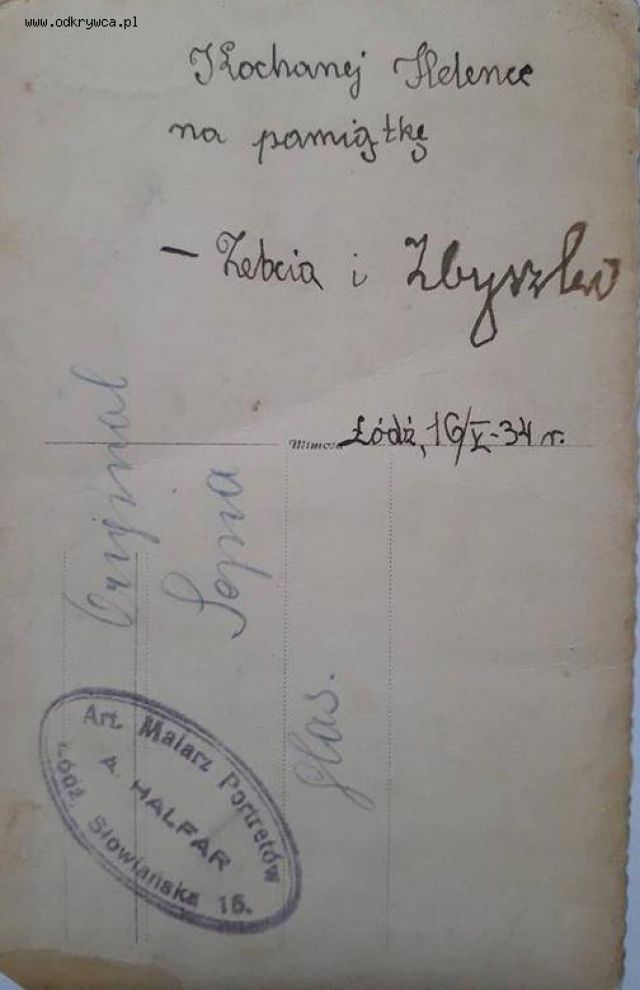 www.odkrywca.pl
Kochanej Helence
na pamiątkę
- Żebcia i Zbyszko
Mimosa Łódź, 16/V-34 r.
Oryginał
Sepia
glas.
Art. Malarz Portretów
A. HALFAR
Łódź, Słowiańska 15.